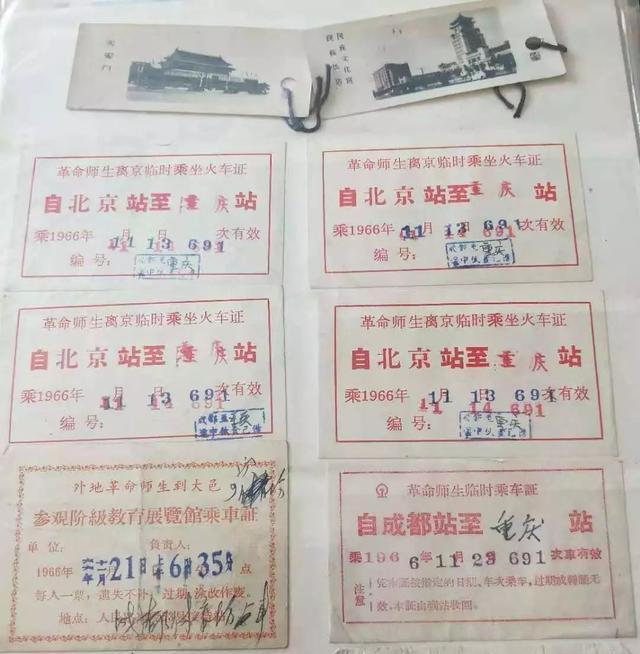 天安门
民族文化宫
民族饭店
革命师生离京临时乘坐火车证
自北京站至重庆站
乘1966年11月13日691次有效
编号:
重庆
革命师生离京临时乘坐火车证
自北京站至重庆站
乘1966年11月13日691次有效
编号:
重庆
革命师生离京临时乘坐火车证
自北京站至重庆站
乘1966年11月13日691次有效
编号:
重庆
革命师生离京临时乘坐火车证
自北京站至重庆站
乘1966年11月13日691次有效
编号:
重庆
外地革命师生到大邑
参观阶級教育展覽館乘車証
单位: 负责人:
1966年 21日 6 35 点
每人一票,遗失不补,过期、涂改作废。
地点:人民
革命师生临时乘车証
自成都站至重庆站
乘1966年11月23日691次車有效
注意:
凭本証按指定的日期、车次乘车,过期或轉讓无
效。本証由到站收囬。